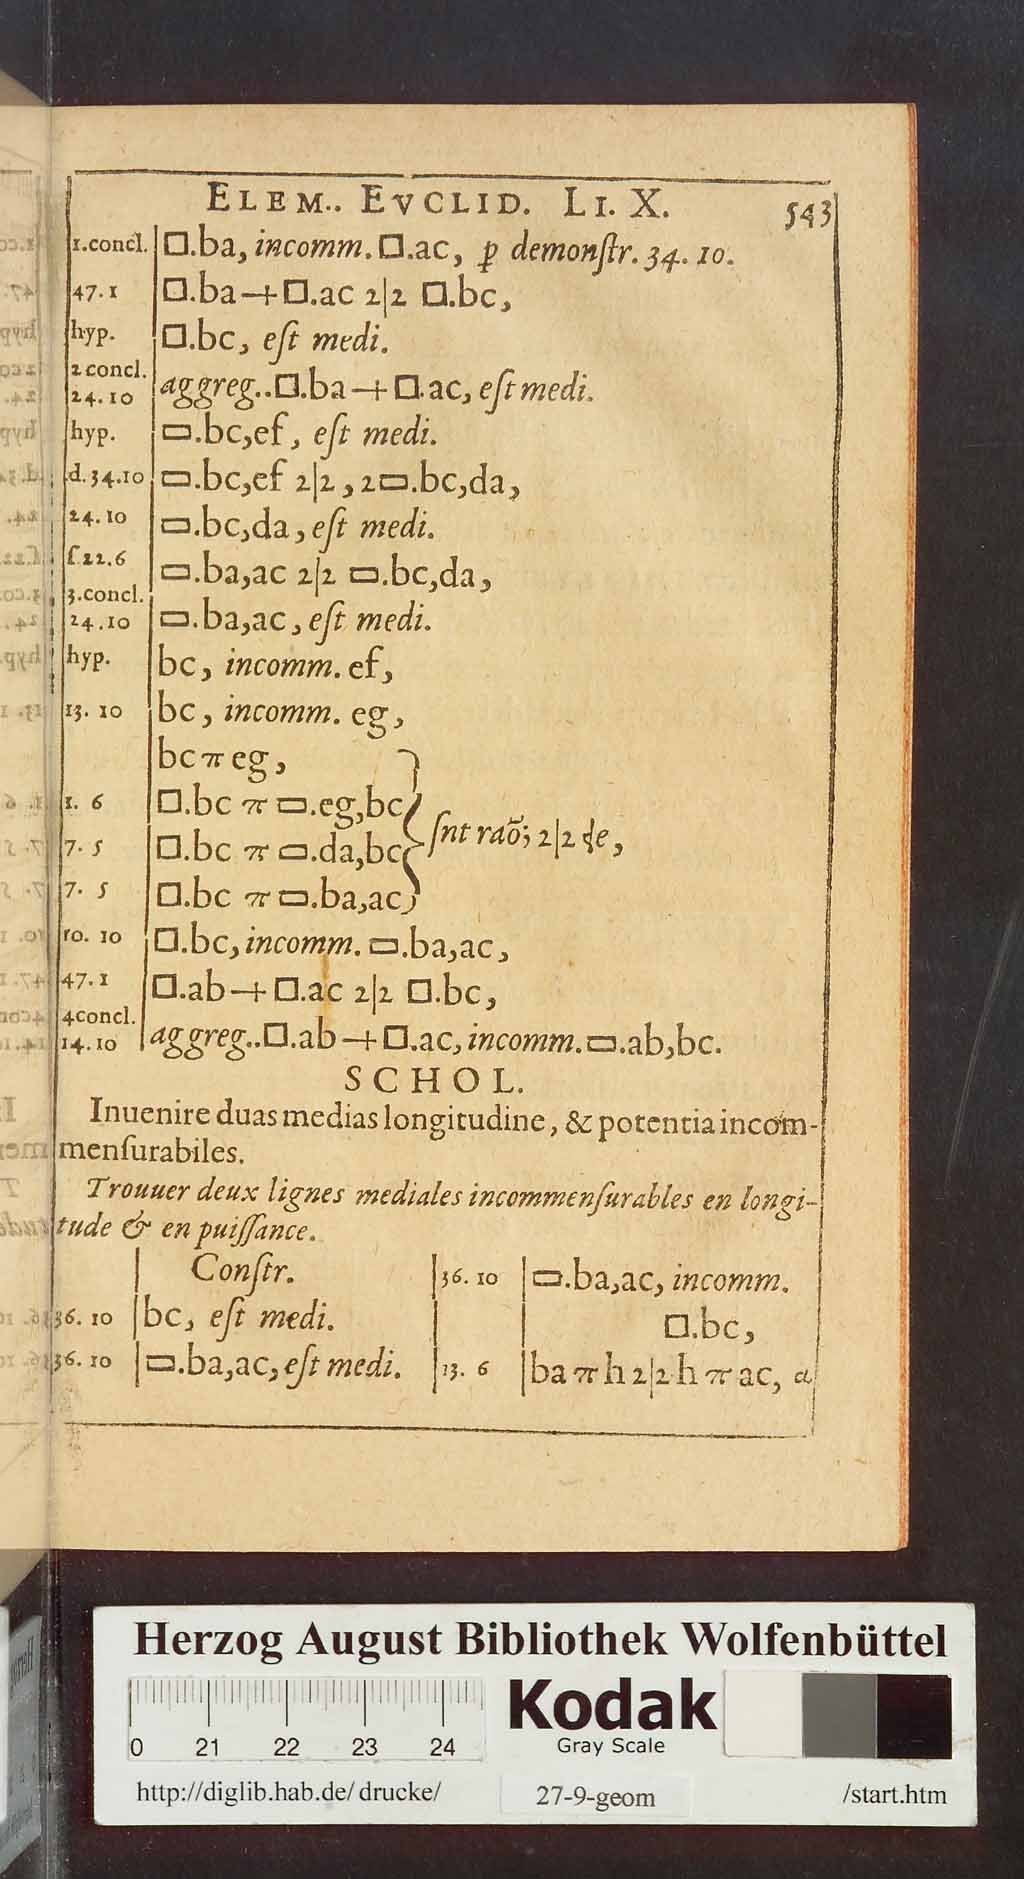 ELEM.. EVCLID. LI. X. 543
1.concl. □.ba, incomm. □.ac, ꝑ demonſtr. 34. 10.
47. 1 □.ba + □.ac 2|2 □.bc,
hyp. □.bc, eſt medi.
2 concl.
24. 10 aggreg.. □.ba + □.ac, eſt medi.
hyp. ▭.bc,ef, eſt medi.
d. 34.10 ▭.bc,ef 2|2, 2▭.bc,da,
24. 10 ▭.bc,da, eſt medi.
ſ.22.6 ▭.ba,ac 2|2 ▭.bc,da,
3.concl.
24.10 ▭.ba,ac, eſt medi.
hyp. bc, incomm. ef,
13. 10 bc, incomm. eg,
bc π eg,
1. 6 □.bc π ▭.eg,bc
7. 5 □.bc π ▭.da,bc } ſnt raõ; 2|2 de,
7. 5 □.bc π ▭.ba,ac
10. 10 □.bc, incomm. ▭.ba,ac,
47. 1 □.ab + □.ac 2|2 □.bc,
4concl.
14. 10 aggreg.. □.ab + □.ac, incomm. ▭.ab,bc.
SCHOL.
Inuenire duas medias longitudine, & potentia incom-
menſurabiles.
Trouuer deux lignes mediales incommenſurables en longi-
tude & en puiſſance.
Conſtr.
36. 10 bc, eſt medi.
36. 10 ▭.ba,ac, eſt medi.
36. 10 ▭.ba,ac, incomm.
□.bc,
13. 6 ba π h 2|2 h π ac, a
Herzog August Bibliothek Wolfenbüttel
Kodak
Gray Scale
0 21 22 23 24
http://diglib.hab.de/drucke/ 27-9-geom /start.htm